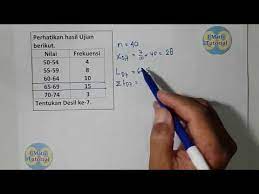 Perhatikan hasil Ujian
berikut.
Nilai Frekuensi
50-54 4
55-59 8
60-64 10
65-69 15
70-74 3
Tentukan Desil ke-7.
n = 40
X_D7 = 7/10 × 40 = 28
L_D7 = 6
Σf_D7 =
Tutorial
Tutorial